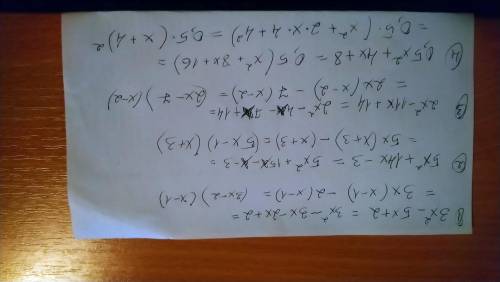 1) 3x² - 5x + 2 = 3x² - 3x - 2x + 2 =
= 3x (x - 1) - 2 (x - 1) = (3x - 2) (x - 1)
2) 5x² + 14x - 3 = 5x² + 15x - x - 3 =
= 5x (x + 3) - (x + 3) = (5x - 1) (x + 3)
3) 2x² - 11x + 14 = 2x² - 4x - 7x + 14 =
= 2x (x - 2) - 7 (x - 2) = (2x - 7) (x - 2)
4) 0,5x² + 4x + 8 = 0,5 (x² + 8x + 16) =
= 0,5 · (x² + 2 · x · 4 + 4²) = 0,5 · (x + 4)²